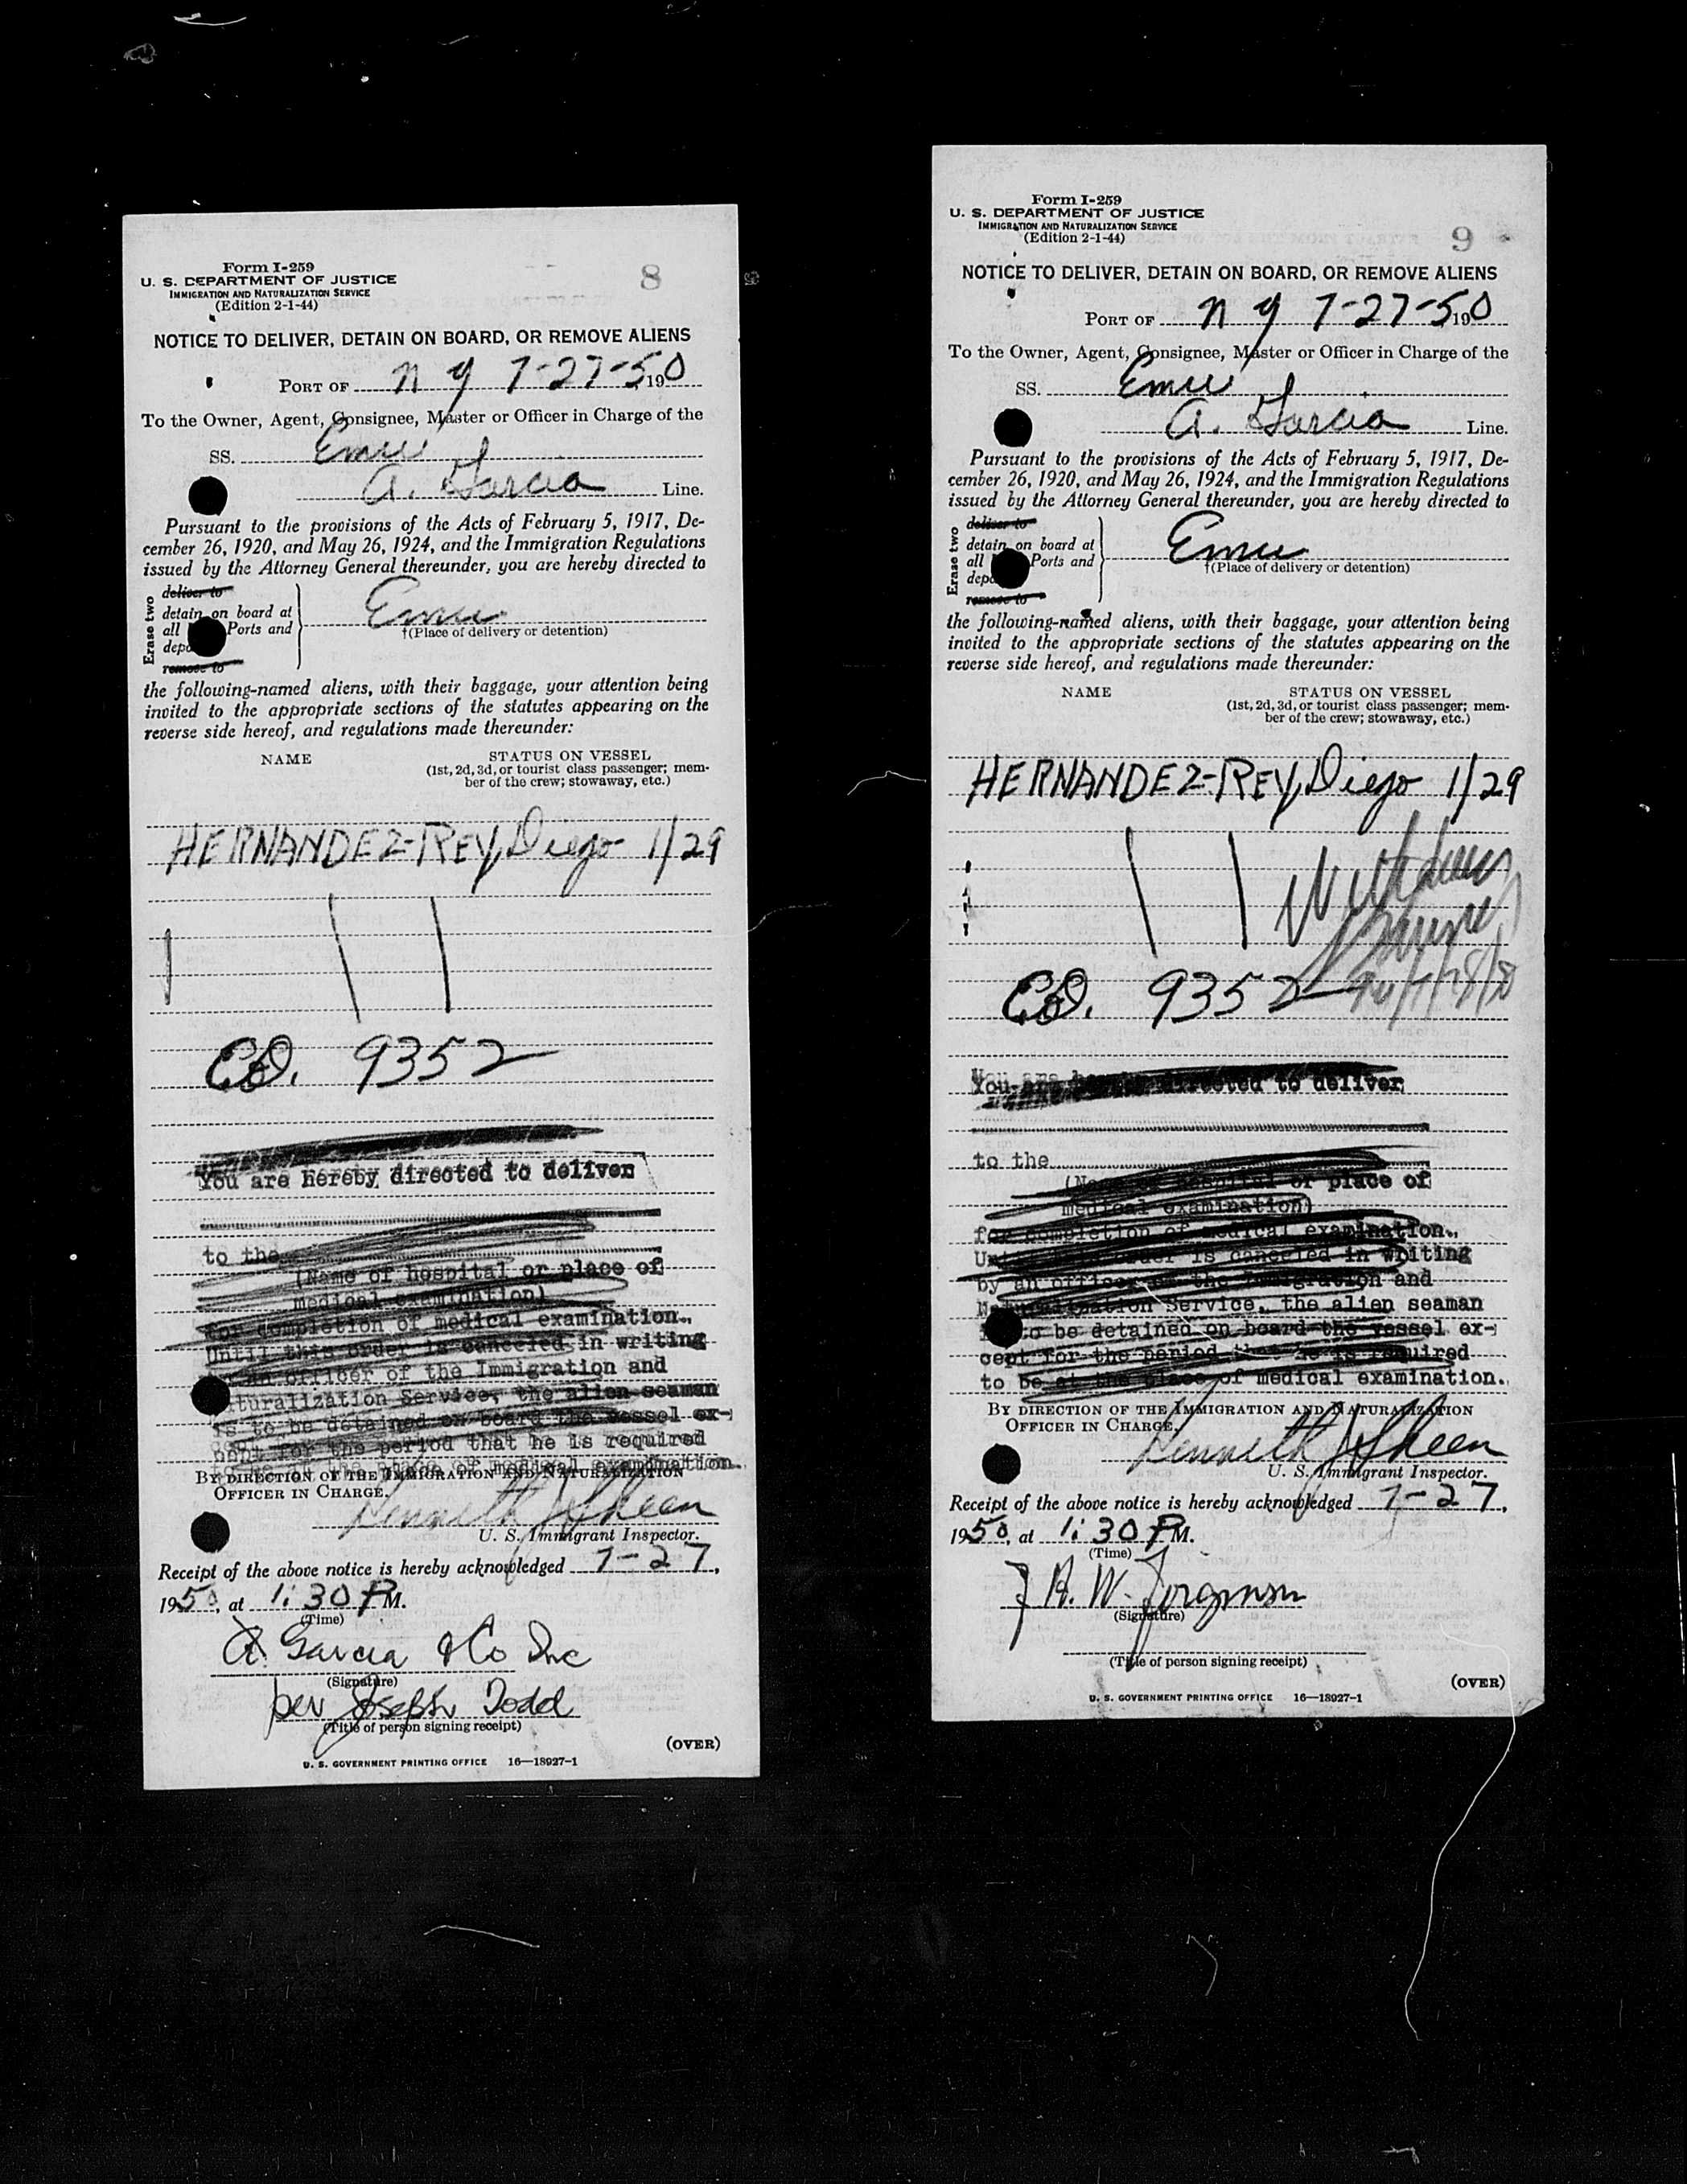 Form I-259
U. S. DEPARTMENT OF JUSTICE
IMMIGRATION AND NATURALIZATION SERVICE
(Edition 2-1-44)
8
NOTICE TO DELIVER, DETAIN ON BOARD, OR REMOVE ALIENS
PORT OF N Y 7-27-50 190
To the Owner, Agent, Consignee, Master or Officer in Charge of the
SS. Emu
A. Garcia Line.
Pursuant to the provisions of the Acts of February 5, 1917, De-
cember 26, 1920, and May 26, 1924, and the Immigration Regulations
issued by the Attorney General thereunder, you are hereby directed to
Erase two
deliver to
detain on board at
all Ports and
remove to
Emu
†(Place of delivery or detention)
the following-named aliens, with their baggage, your attention being
invited to the appropriate sections of the statutes appearing on the
reverse side hereof, and regulations made thereunder:
NAME STATUS ON VESSEL
(1st, 2d, 3d, or tourist class passenger; mem-
ber of the crew; stowaway, etc.)
HERNANDEZ-REY, Diego 1/29
9352
You are hereby directed to deliver
to the
(Name of hospital or place of
medical examination)
for completion of medical examination.
Until this order is canceled in writing
an officer of the Immigration and
Service, the alien seaman
is to be detained on board the vessel ex-
cept for the period that he is required
place of medical examination.
BY DIRECTION OF THE IMMIGRATION AND NATURALIZATION
OFFICER IN CHARGE.
Kenneth J Sheen
U. S. Immigrant Inspector.
Receipt of the above notice is hereby acknowledged 7-27,
1950, at 1:30 P M.
(Time)
A. Garcia & Co Inc
(Signature)
per Joseph Todd
(Title of person signing receipt)
(OVER)
U. S. GOVERNMENT PRINTING OFFICE 16—18927-1
Form I-259
U. S. DEPARTMENT OF JUSTICE
IMMIGRATION AND NATURALIZATION SERVICE
(Edition 2-1-44)
9
NOTICE TO DELIVER, DETAIN ON BOARD, OR REMOVE ALIENS
PORT OF N Y 7-27-50 190
To the Owner, Agent, Consignee, Master or Officer in Charge of the
SS. Emu
A. Garcia Line.
Pursuant to the provisions of the Acts of February 5, 1917, De-
cember 26, 1920, and May 26, 1924, and the Immigration Regulations
issued by the Attorney General thereunder, you are hereby directed to
Erase two
deliver to
detain on board at
all Ports and
remove to
Emu
†(Place of delivery or detention)
the following-named aliens, with their baggage, your attention being
invited to the appropriate sections of the statutes appearing on the
reverse side hereof, and regulations made thereunder:
NAME STATUS ON VESSEL
(1st, 2d, 3d, or tourist class passenger; mem-
ber of the crew; stowaway, etc.)
HERNANDEZ-REY, Diego 1/29
9352
You are directed to deliver
to the
place of
medical examination)
for completion of medical examination.
order is canceled in writing
by an officer of the Immigration and
Service, the alien seaman
to be detained on board the vessel ex-
cept for the period that he is required
to be at the place of medical examination.
BY DIRECTION OF THE IMMIGRATION AND NATURALIZATION
OFFICER IN CHARGE.
Kenneth J Sheen
U. S. Immigrant Inspector.
Receipt of the above notice is hereby acknowledged 7-27,
1950, at 1:30 P M.
(Time)
W. Jorgensen
(Signature)
(Title of person signing receipt)
(OVER)
U. S. GOVERNMENT PRINTING OFFICE 16—18927-1